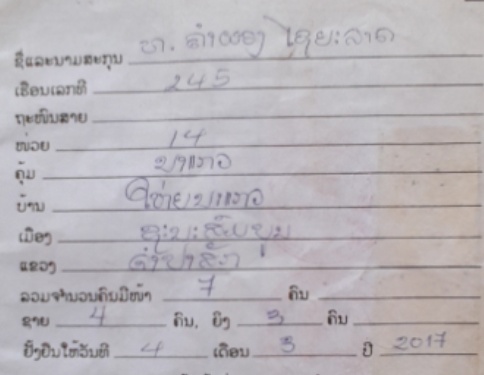 ຊື່ແລະນາມສະກຸນ ທ. ຄຳຫຼອງ ໄຊຍະລາດ
ເຮືອນເລກທີ 245
ຖະໜົນສາຍ
ໜ່ວຍ 14
ຄຸ້ມ ນາແກວ
ບ້ານ
ເມືອງ ຊະນະສົມບູນ
ແຂວງ ຈຳປາສັກ
ລວມຈຳນວນຄົນມີໜ້າ 7 ຄົນ
ຊາຍ 4 ຄົນ, ຍິງ 3 ຄົນ
ຍັ້ງຢືນໃຫ້ວັນທີ 4 ເດືອນ 3 ປີ 2017